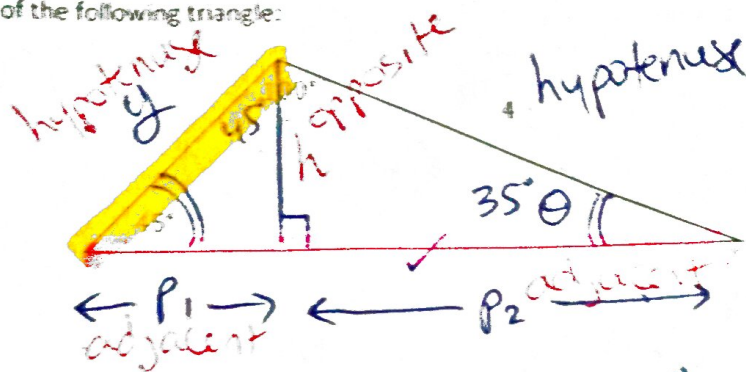 of the following triangle:
hypotenuse
y
45°
h opposite
4
hypotenuse
35° θ
P₁
adjacent
P₂
adjacent